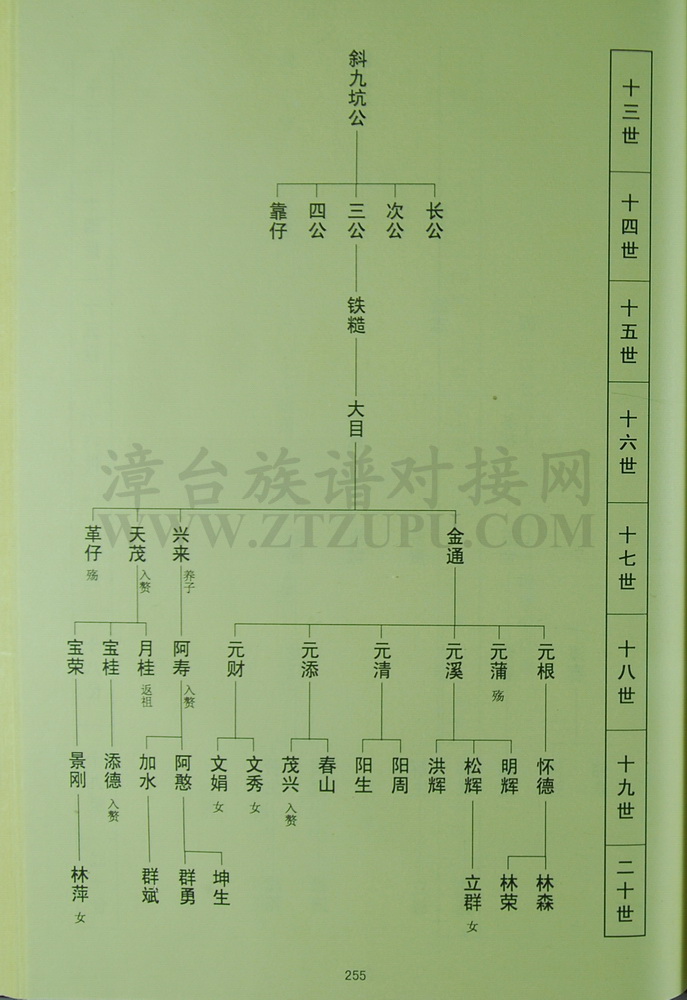 十三世
斜九坑公
十四世
长公
次公
三公
四公
靠仔
十五世
铁糙
十六世
大目
十七世
金通
兴来 养子
天茂 入赘
革仔 殇
十八世
元根
元蒲 殇
元溪
元清
元添
元财
阿寿 入赘
月桂 返祖
宝桂
宝荣
十九世
怀德
明辉
松辉
洪辉
阳周
阳生
春山
茂兴 入赘
文秀 女
文娟 女
阿憨
加水
添德 入赘
景刚
二十世
林森
林荣
立群 女
坤生
群勇
群斌
林萍 女
漳台族谱对接网
WWW.ZTZUPU.COM
255